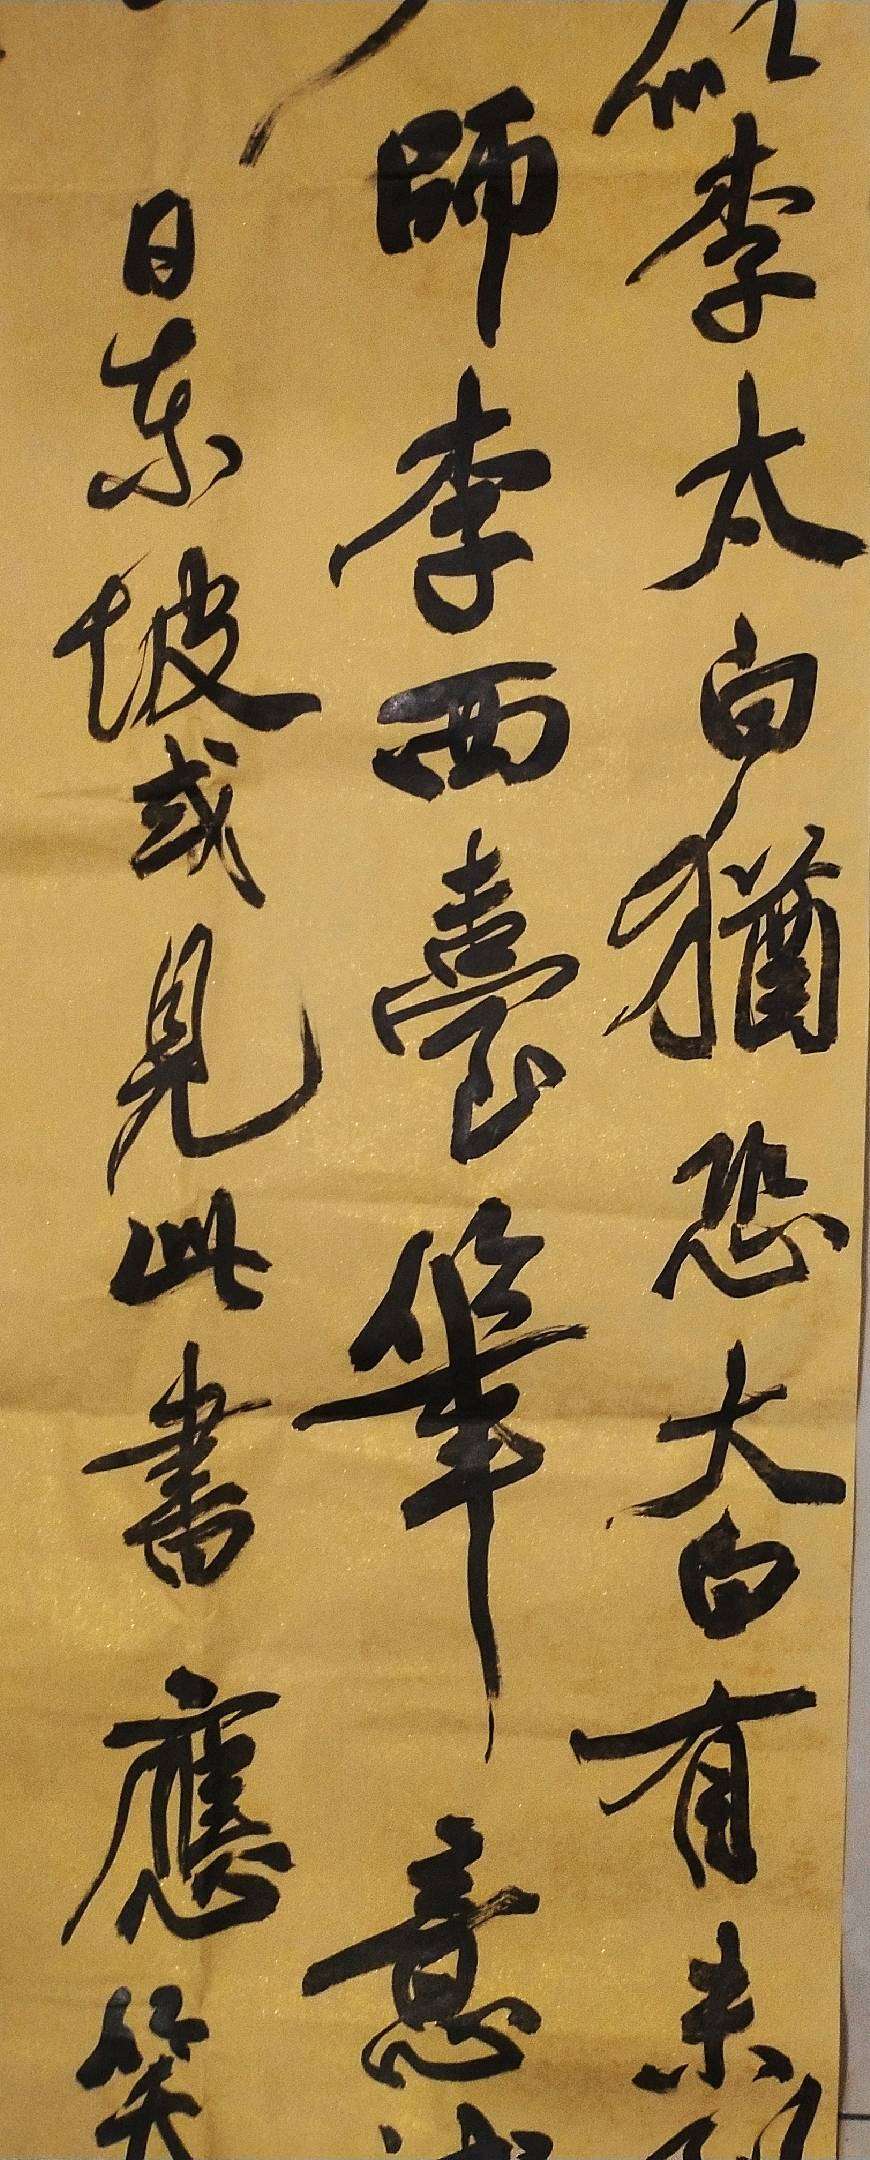 似李太白猶恐大白有未
師李西臺筆意
日東坡或見此書應笑